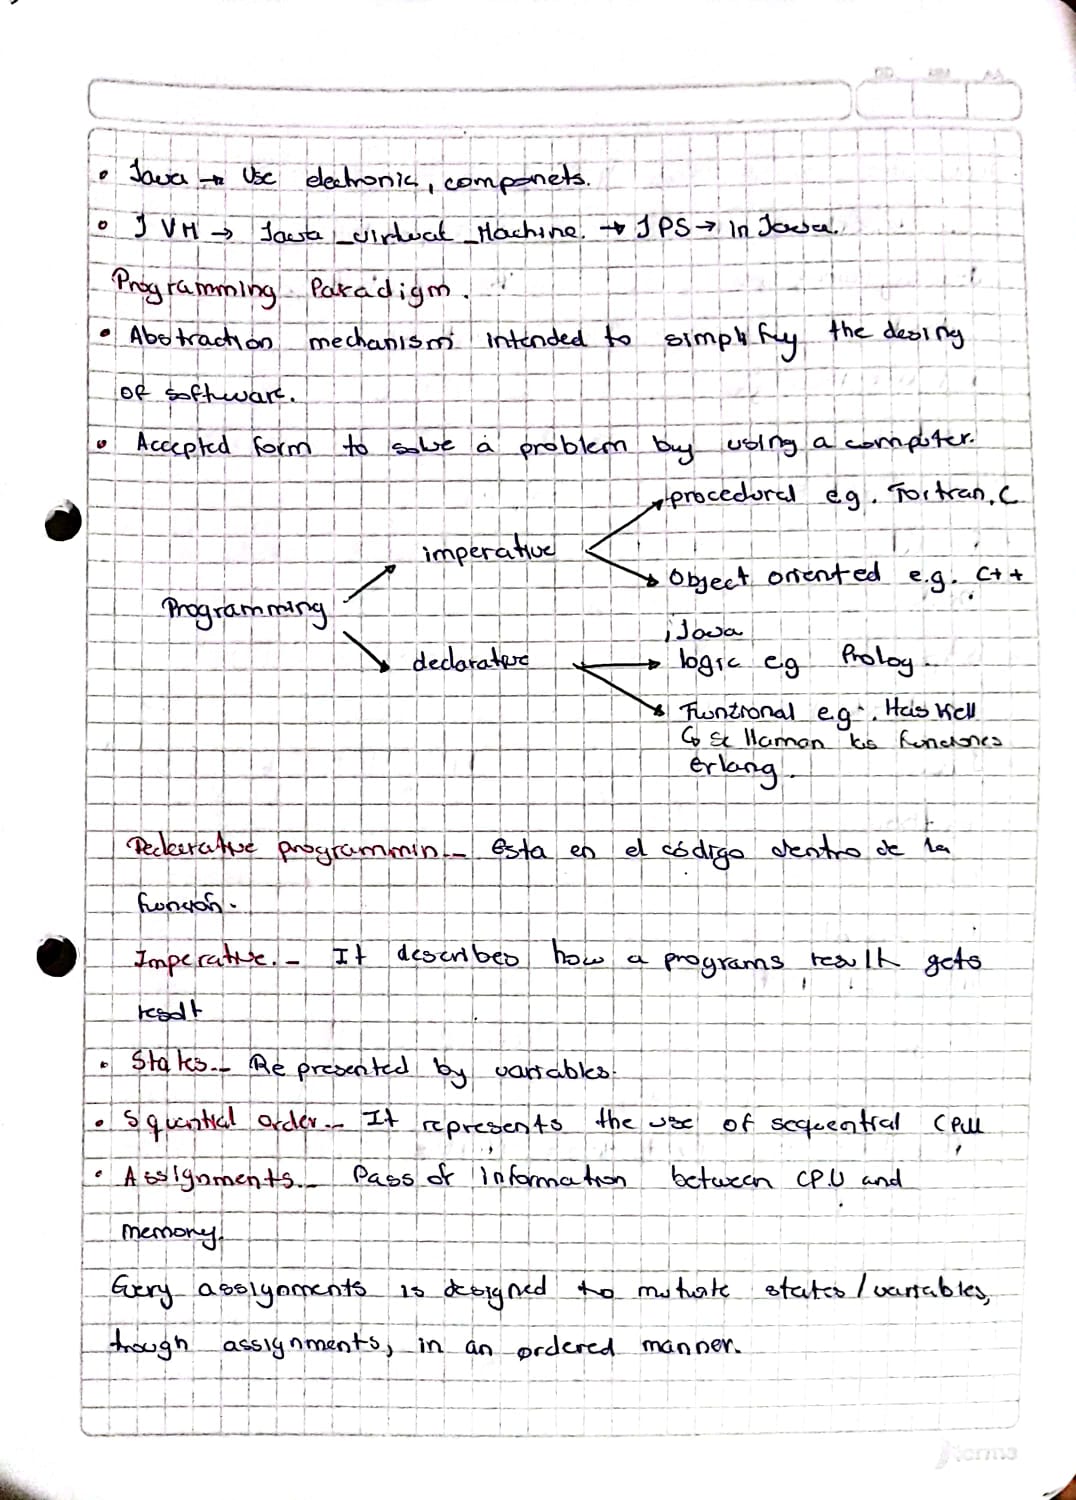 • Java → Use electronic, componets.
• JVM → Java_virtual_Machine. → JPS → In Java.
Programming Paradigm.
• Abstraction mechanism intended to simplify the desing
of software.
• Accepted form to solve a problem by using a computer.
procedural e.g. Fortran, C
imperative
Object oriented e.g. C++
Programming
; Java
declarative
logic eg Prolog
Funtional e.g. Haskell
↳ se llaman las funciones
erlang.
Declarative programmin.- Esta en el código dentro de la
función.
Imperative.- It describes how a programs result gets
result
• States.- Represented by variables.
• Squential order.- It represents the use of sequential CPU
• Assignments.- Pass of information between CPU and
memory.
Every assignments is designed to mutate states/variables,
trough assignments, in an ordered manner.
Norma